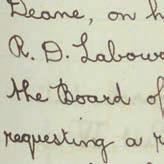 Deane, on h
R. D. Labou
the Board of
requesting a r